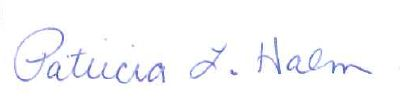 Patricia L. Halm